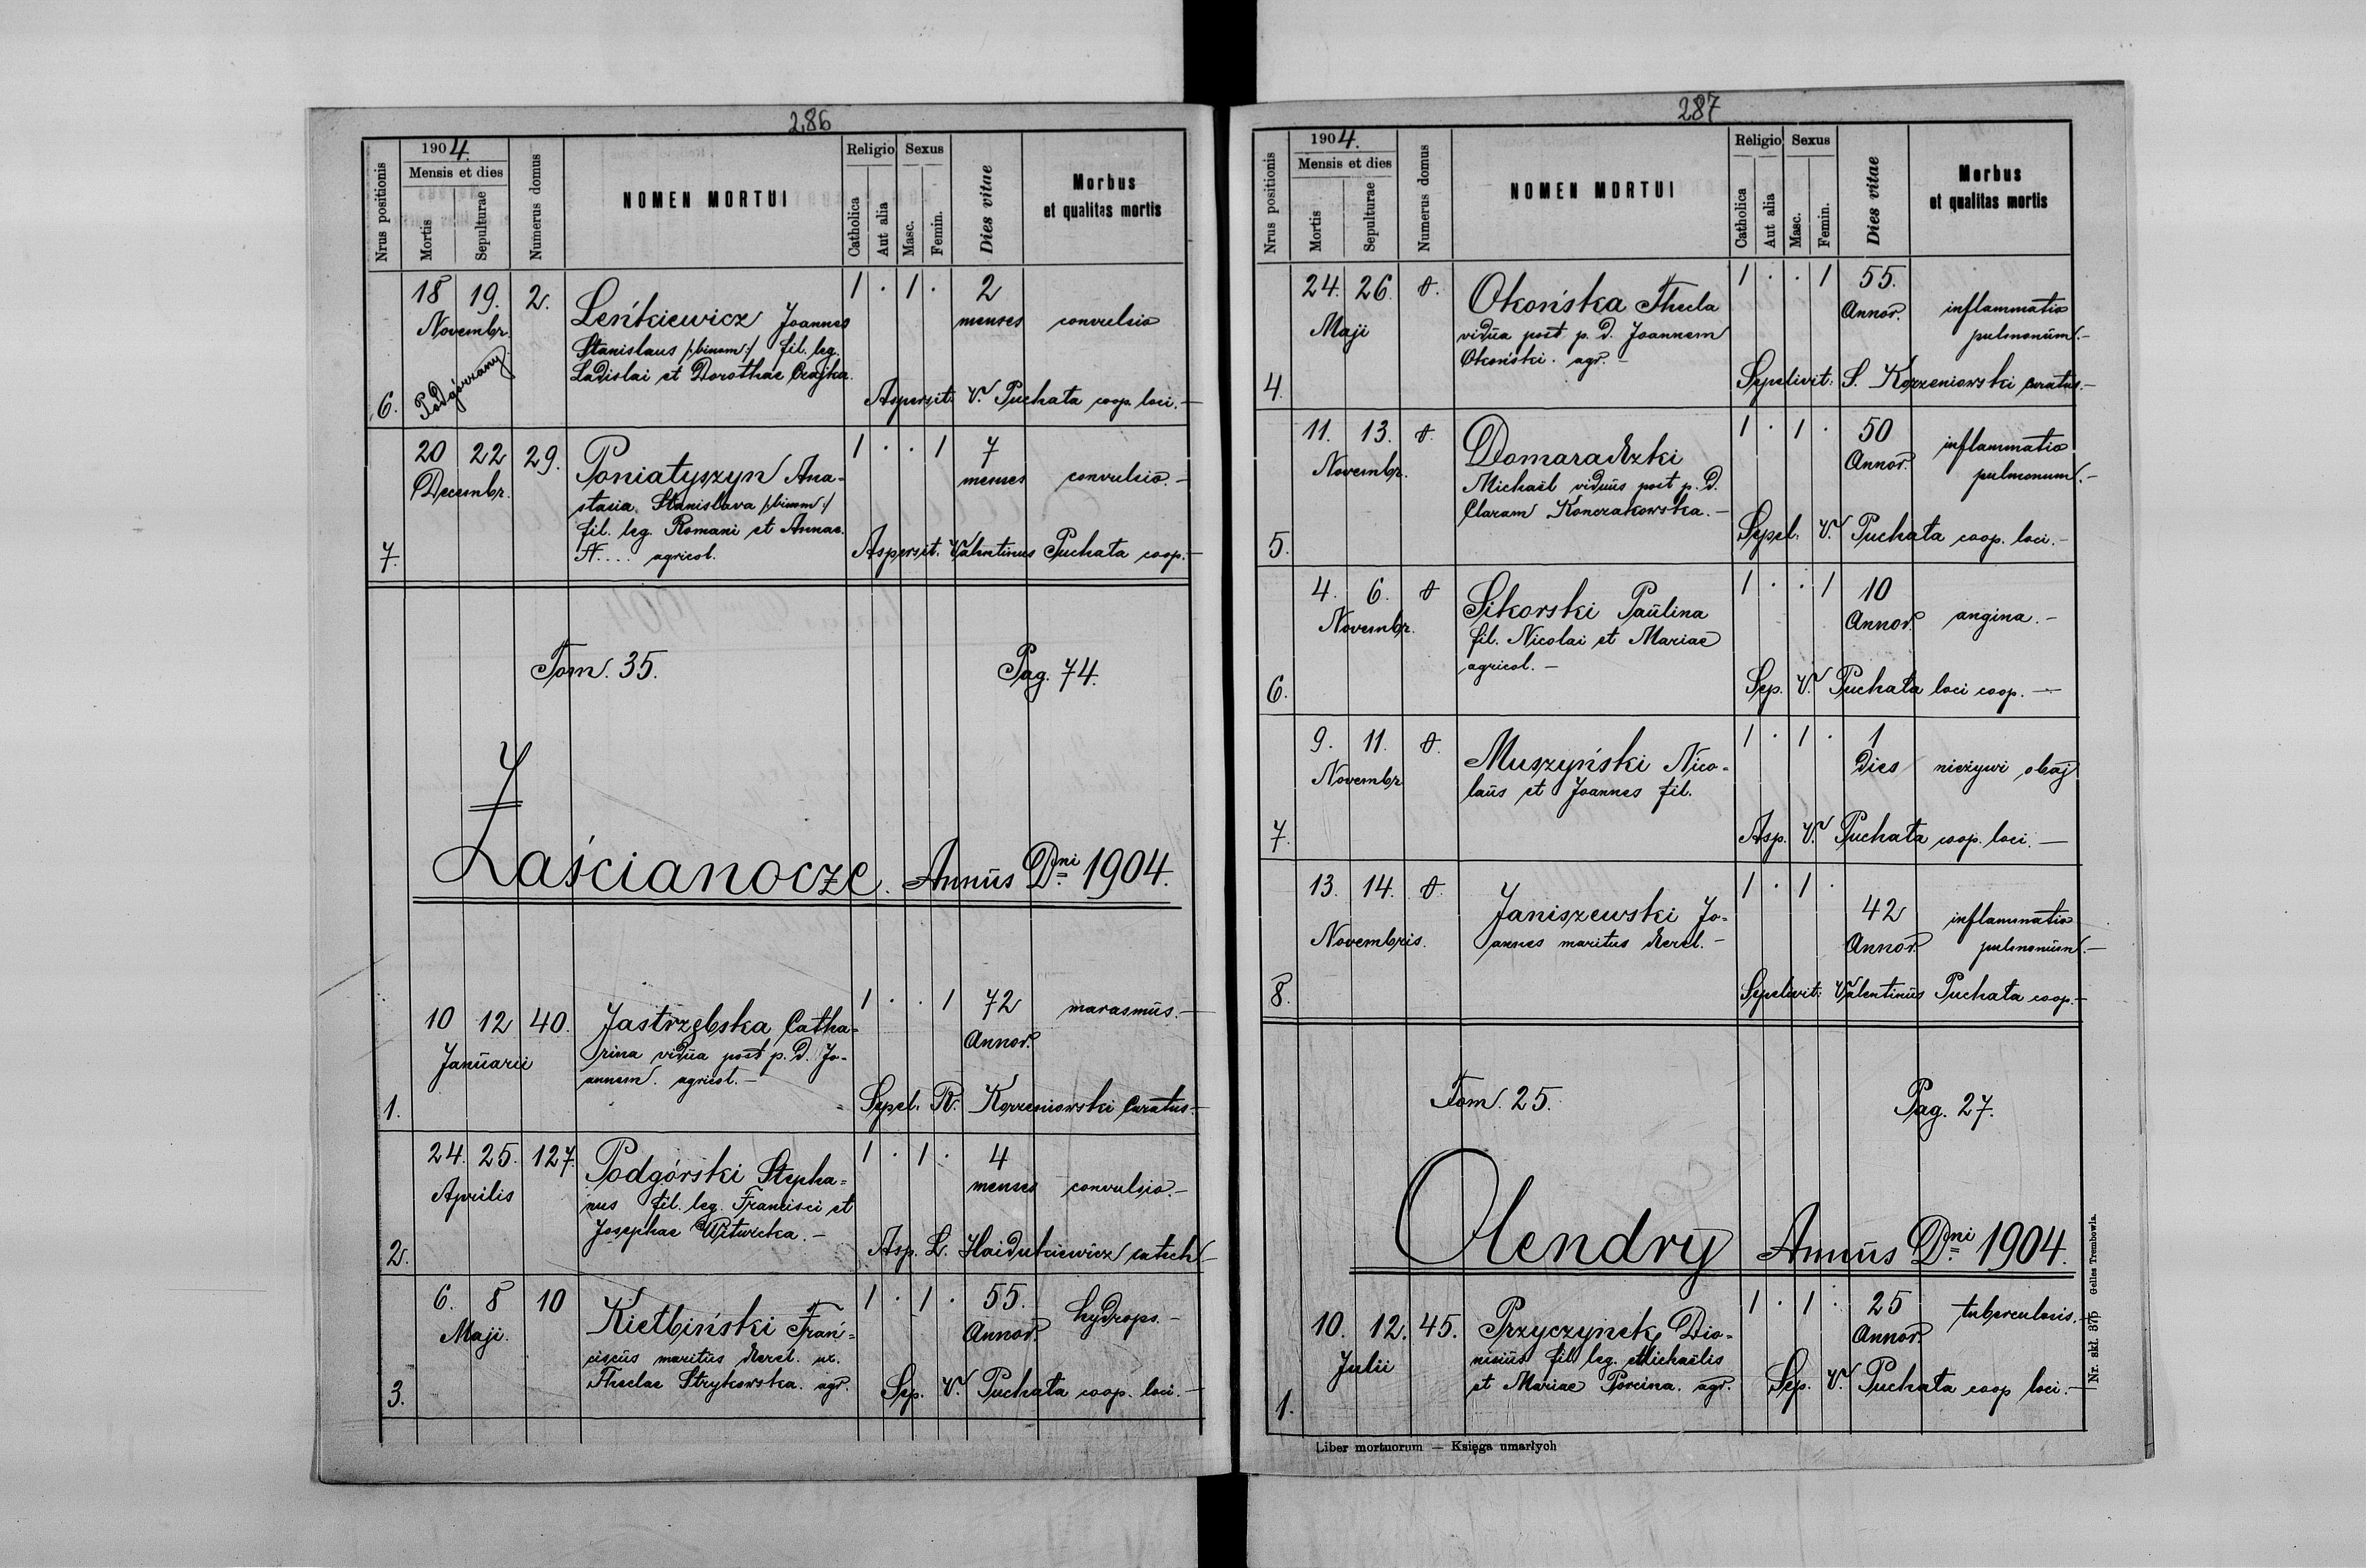 286
1904.
Nrus positionis
Mensis et dies
Mortis
Sepulturae
Numerus domus
NOMEN MORTUI
Religio
Catholica
Aut alia
Sexus
Masc.
Femin.
Dies vitae
Morbus
et qualitas mortis
18 19. 2. 1 . 1 . 2
Novembr. Leńkiewicz Joannes menses convulsio
Stanislaus /:binom:/ fil. leg.
Podgórzany Ladislai et Dorotheae Czajka.
6. Aspersit V. Puchata coop. loci.—
20 22 29. 1 . . 1 7
Decembr. Poniatyszyn Ana- menses convulsio.—
stasia Stanislava /:binom:/
fil. leg. Romani et Annae
7. N.... agricol. Aspersit. Valentinus Puchata coop.—
Tom. 35. Pag. 74.
7
Łaścianocze. Annus Dni 1904.
10 12 40. 1 . . 1 72 marasmus.—
Januarii Jastrzębska Catha- Annor.
rina vidua post p. d. Jo-
annem. agricol.—
1. Sepel. R. Korzeniowski Curatus.—
24. 25. 127. 1 . 1 . 4
Aprilis Podgórski Stepha- menses convulsio.—
nus fil. leg. Francisci et
Josephae
2. Asp. L. Haidukiewicz catech.—
6. 8 10 1 . 1 . 55. hydrops.—
Maji. Kiełbiński Fran- Annor.
ciscus maritus derel. ux.
Theclae Strykowska. agr.
3. Sep. V. Puchata coop. loci.—
287
1904.
Nrus positionis
Mensis et dies
Mortis
Sepulturae
Numerus domus
NOMEN MORTUI
Religio
Catholica
Aut alia
Sexus
Masc.
Femin.
Dies vitae
Morbus
et qualitas mortis
24. 26. 1 . . 1 55.
Maji Okońska Thecla Annor. inflammatio
vidua post p. d. Joannem pulmonum.—
Okoński. agr.—
4. Sepelivit: S. Korzeniowski curatus.—
11. 13. 1 . 1 . 50
Novembr. Domaradzki Annor. inflammatio
Michaël viduus post p. d. pulmonum.—
Claram Konczakowska.—
5. Sepel. V. Puchata coop. loci.—
4. 6. 1 . . 1 10
Novembr. Sikorski Paulina Annor. angina.—
fil. Nicolai et Mariae
agricol.—
6. Sep. V. Puchata loci coop.—
9. 11. 1 . 1 . 1
Novembr. Muszyński Nico- dies nieżywi obaj
laus et Joannes fil.
7. Asp. V. Puchata coop. loci.—
13. 14. 1 . 1 . 42
Novembris. Janiszewski Jo- Annor. inflammatio
annes maritus derel.— pulmonum.—
8. Sepelivit: Valentinus Puchata coop.—
Tom. 25. Pag. 27.
Olendry Annus Dni 1904.
10. 12. 45. 1 . 1 . 25 tuberculosis.—
Julii Przyczynek Dio- Annor.
nisius fil. leg. Michaëlis
et Mariae Porcina. agr.
1. Sep. V. Puchata coop loci.—
Liber mortuorum — Księga umarłych
Nr. skl. 375 Gelles Trembowla.